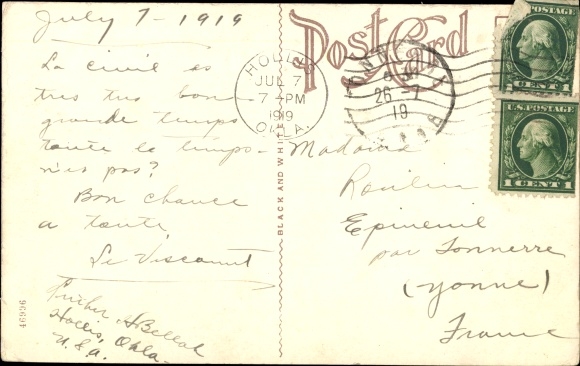 July 7 - 1919
La civil es
tres tres bon
grande temps
toute le temps -
n'es pas?
Bon chance
a toute
Le Viscount
Hollis, Okla.
U.S.A.
46996
BLACK AND WHITE
Post Card
HOLLIS
JUL 7
7 PM
1919
OKLA.
26-7
19
U.S. POSTAGE
1 CENT 1
U.S. POSTAGE
1 CENT 1
Madame
Roulin
Epineuil
par Tonnerre
(Yonne)
France